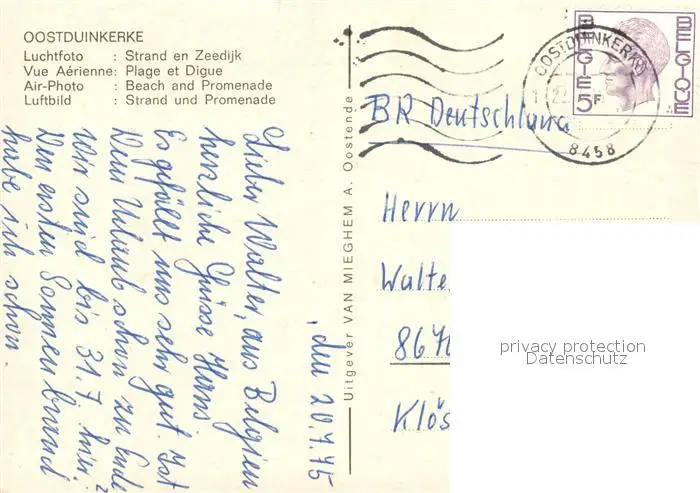 OOSTDUINKERKE
Luchtfoto : Strand en Zeedijk
Vue Aérienne : Plage et Digue
Air-Photo : Beach and Promenade
Luftbild : Strand und Promenade
, den 20.7.75
Lieber Walter, aus Belgien
herzliche Grüsse Hans
Es gefällt uns sehr gut. Ist
Dein Urlaub schon zu Ende?
Wir sind bis 31.7. hier.
Den ersten Sonnenbrand
habe ich schon
Uitgever VAN MIEGHEM A. Oostende
BELGIE 5F
BELGIQUE
OOSTDUINKERKE
8458
BR Deutschland
Herrn
Walte
867
Klös
privacy protection
Datenschutz